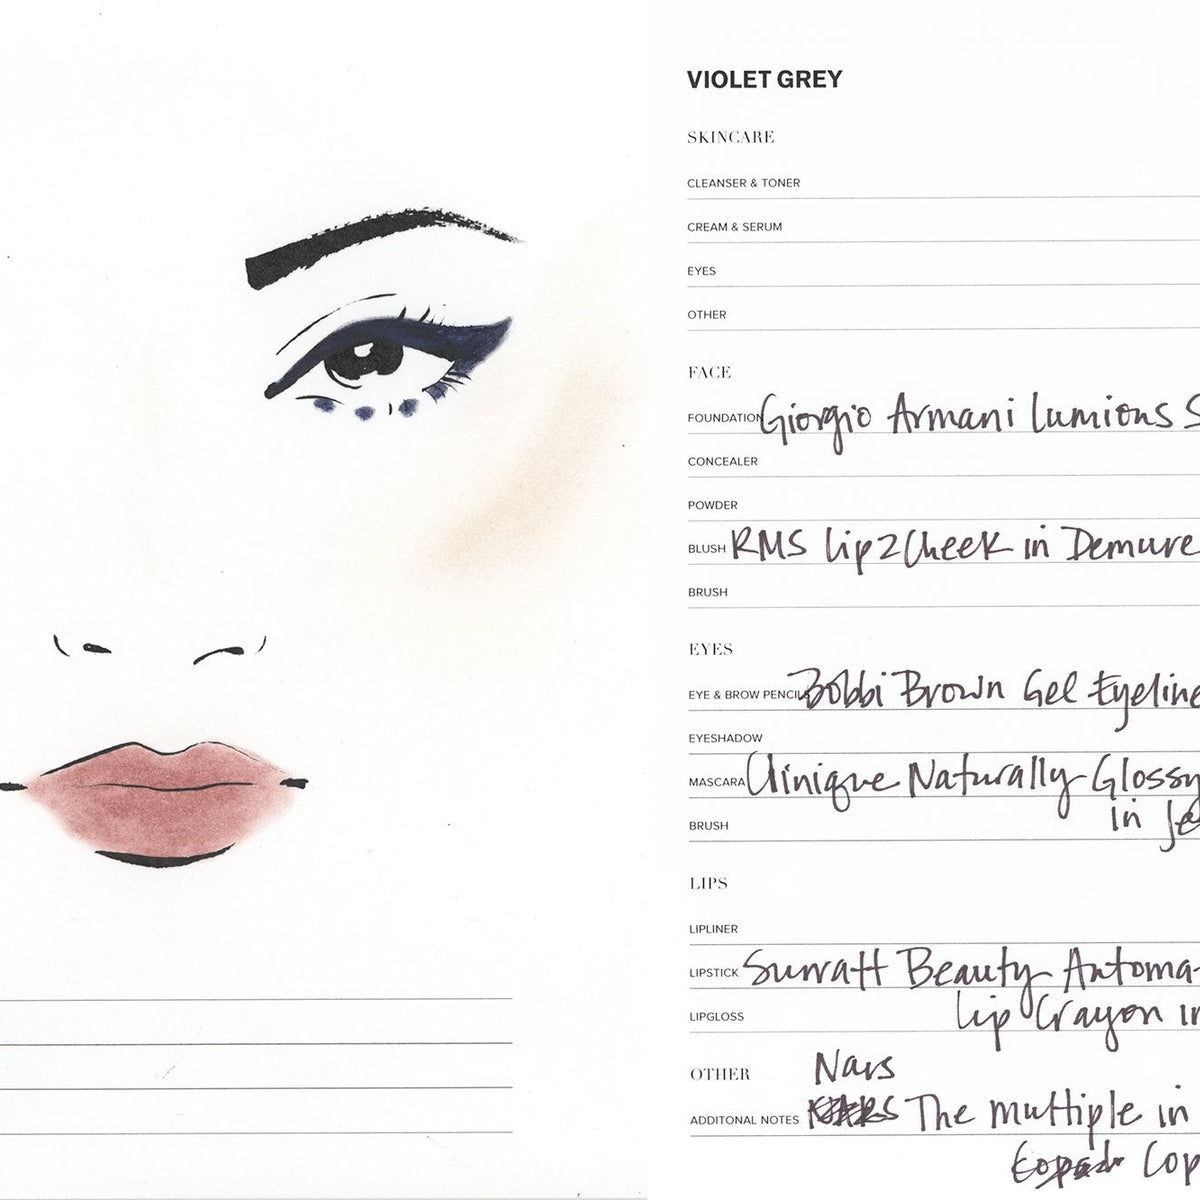 VIOLET GREY
SKINCARE
CLEANSER & TONER
CREAM & SERUM
EYES
OTHER
FACE
FOUNDATION Giorgio Armani Lumions S
CONCEALER
POWDER
BLUSH RMS Lip2Cheek in Demure
BRUSH
EYES
EYE & BROW PENCILS Bobbi Brown Gel Eyeline
EYESHADOW
MASCARA Clinique Naturally Glossy
in Je
BRUSH
LIPS
LIPLINER
LIPSTICK Surratt Beauty Automa-
Lip Crayon in
LIPGLOSS
OTHER Nars
ADDITONAL NOTES NARS The multiple in
Cop